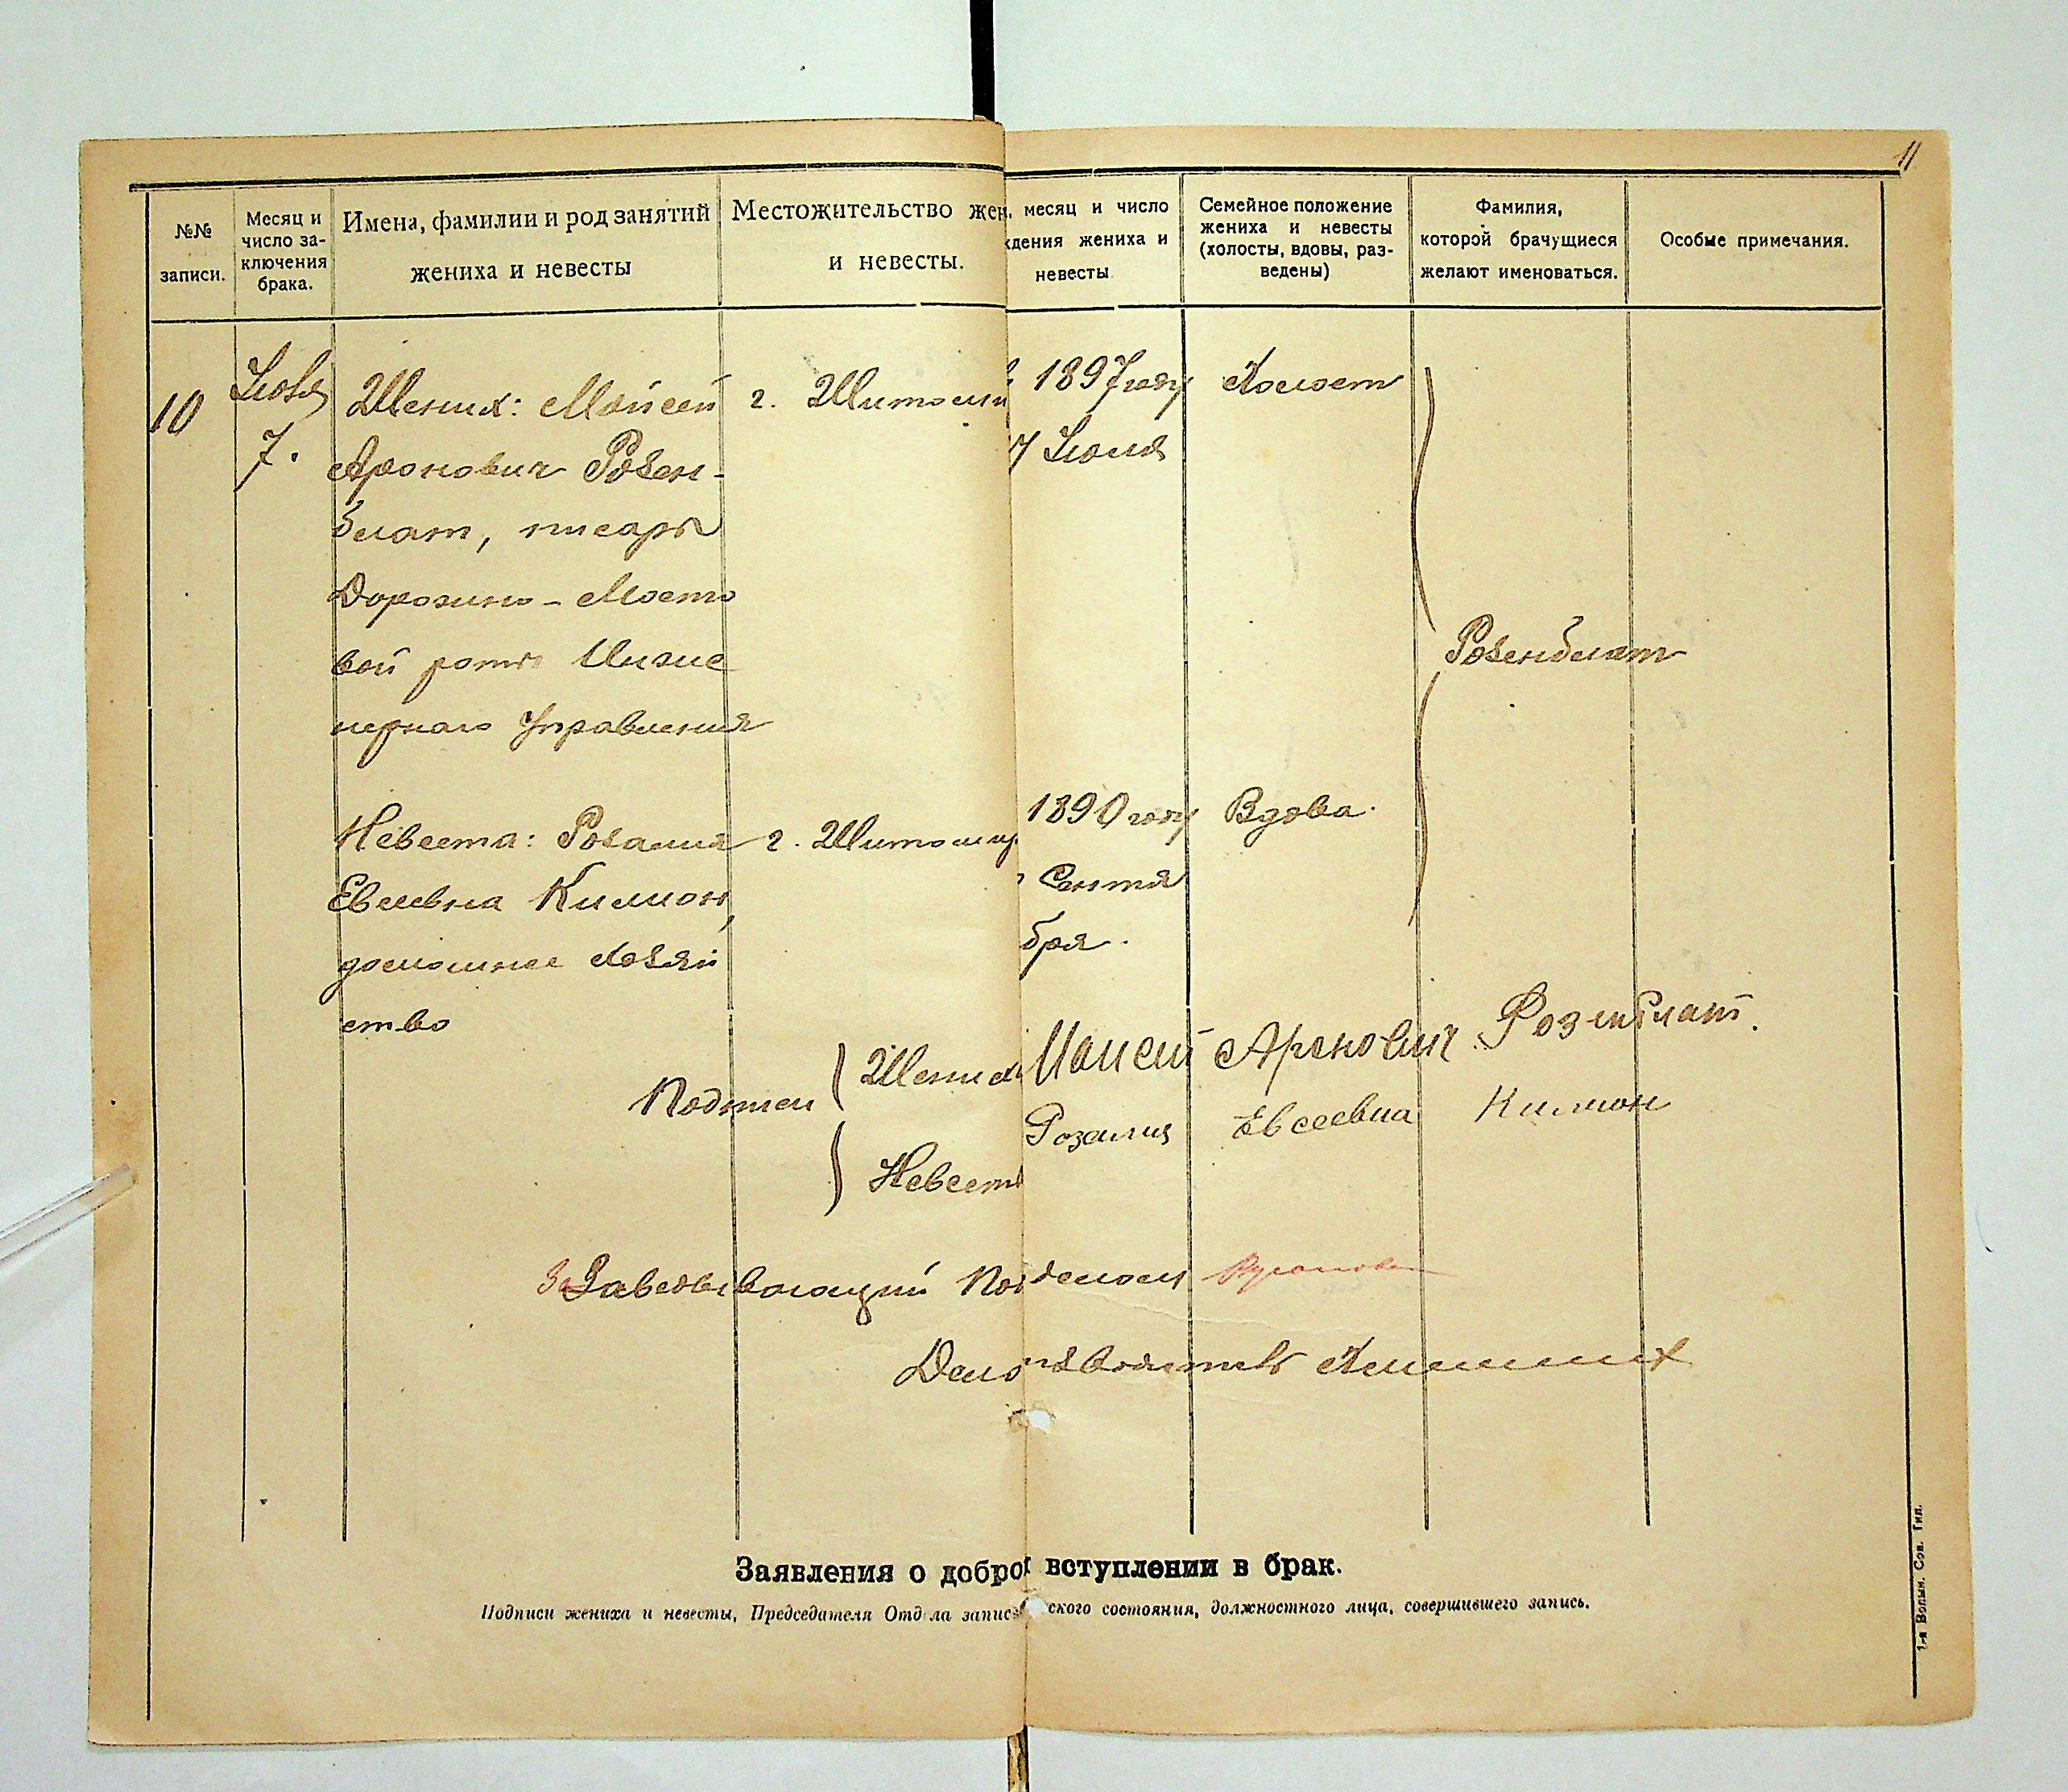 11
№№ записи.
Месяц и число за-
ключения брака.
Имена, фамилии и род занятий
жениха и невесты
Местожительство жен
и невесты.
месяц и число
ждения жениха и
невесты
Семейное положение
жениха и невесты
(холосты, вдовы, раз-
ведены)
Фамилия,
которой брачущиеся
желают именоваться.
Особые примечания.
10
7.
Жених: Мойсей
Аронович Розен-
блат, писарь
Дорожно-Мосто
вой роты Инже
нернаго Управления
г. Житоми
1897 году
7 Июля
Холост
Розенблат
Невеста: Розалия
Евсеевна Килимон,
домашнее хозяй
ство
г. Житомир
1890 году
Сентя
бря.
Вдова.
Жених Моисей Аронович Розенблат.
Розалия Евсеевна
Невеста
Заведывающий Подделом
Делопроизводитель
Заявления о доброг вступлении в брак.
Подписи жениха и невесты, Председателя Отдела запис ского состояния, должностного лица, совершившего запись.
1-я Волын. Сов. Тип.